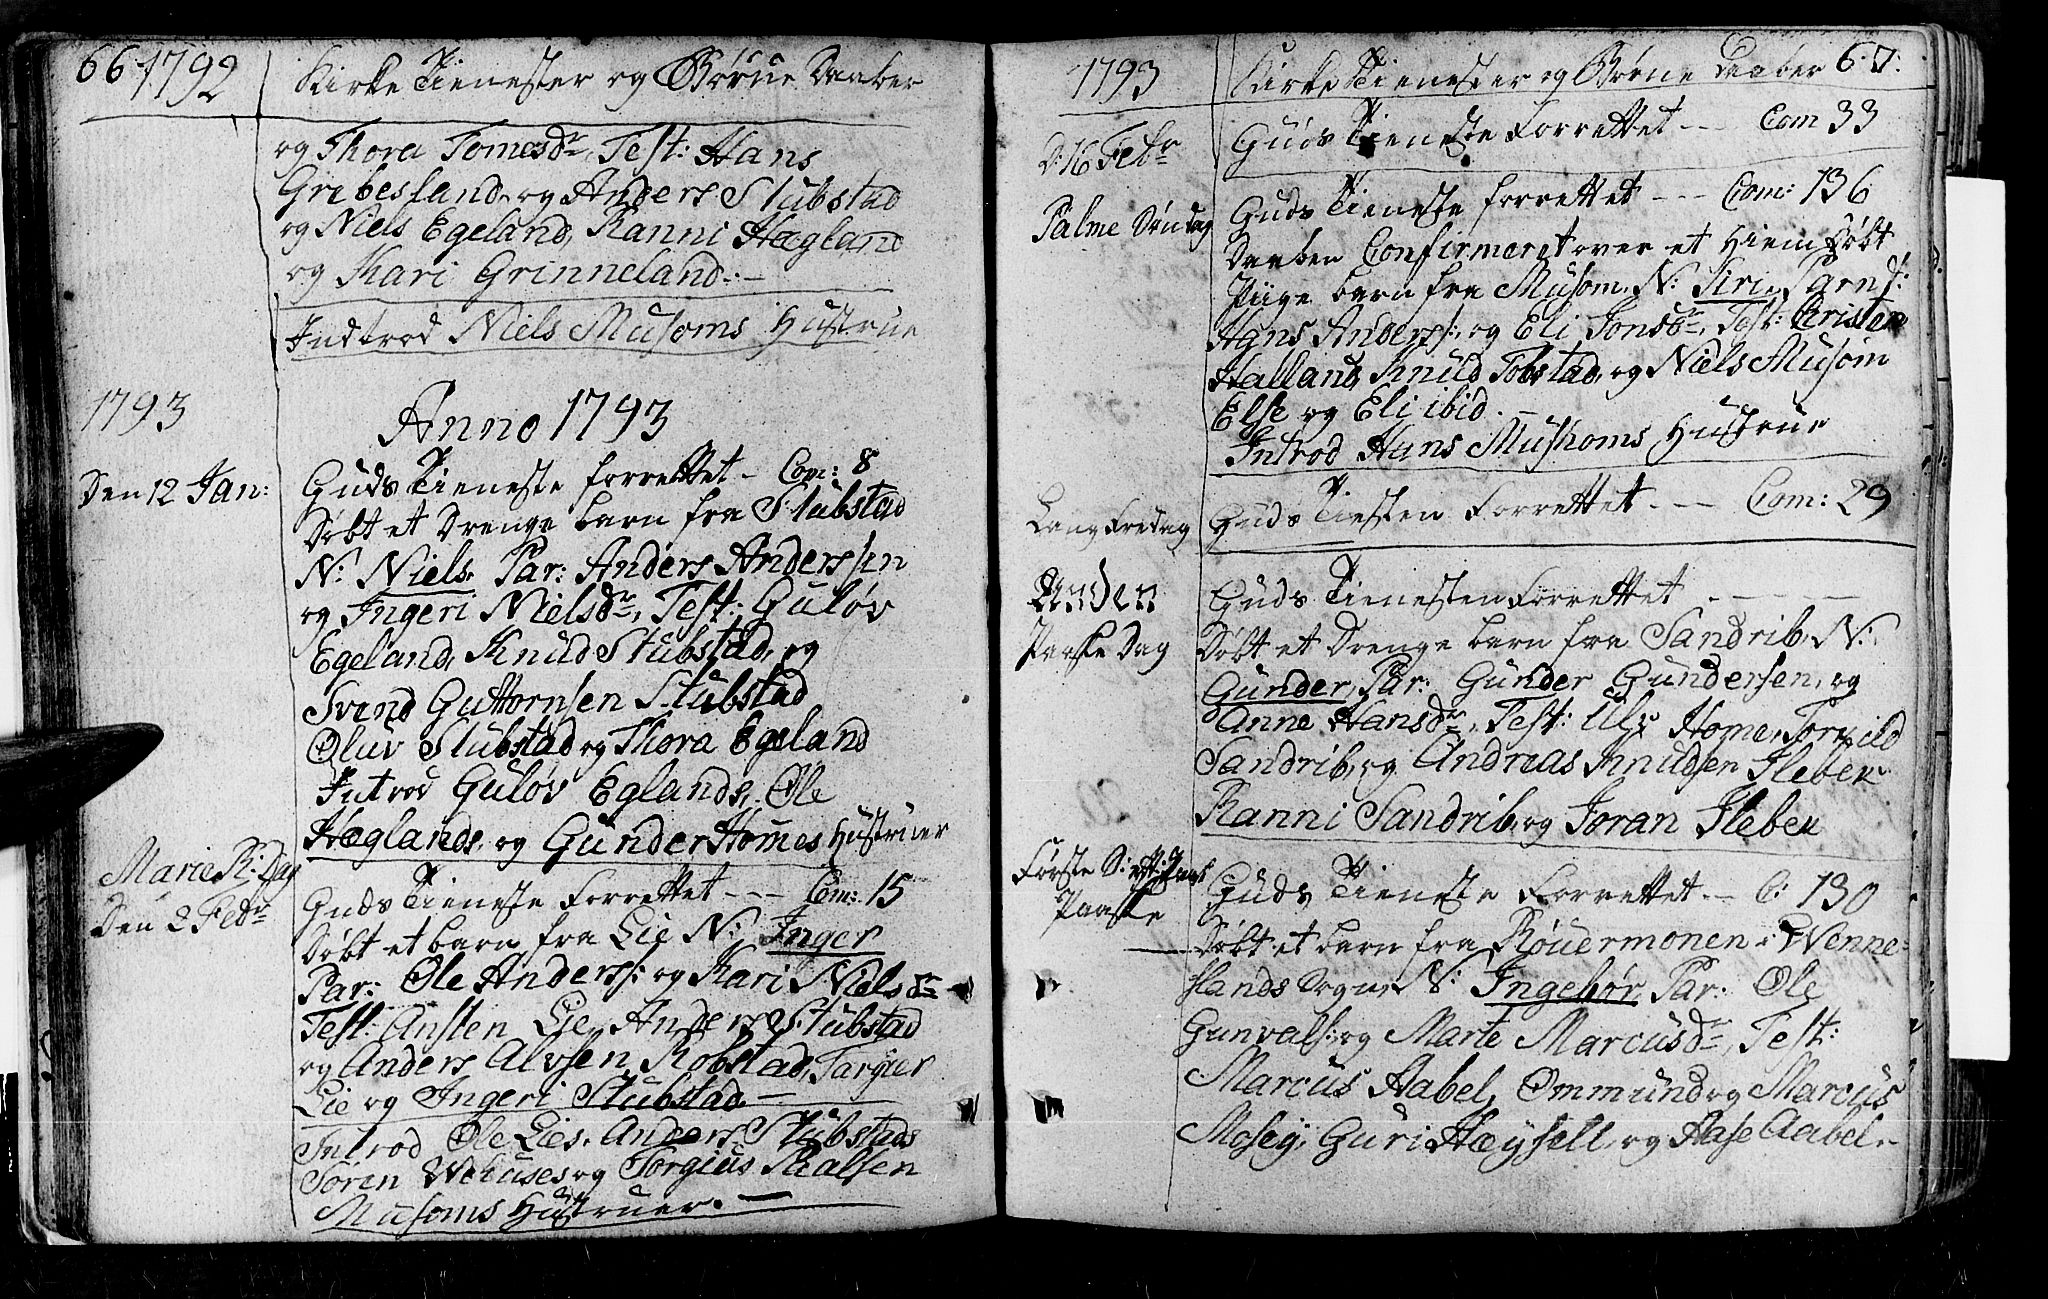 66 1792 Kirke Tienester og Børne Daaber
og Thora Tomesdr, Test: Hans
Gribesland, og Anders Stubstad
og Niels Egeland, Ranni Hægland
og Kari Grinneland: -
Indtrod Niels Musoms Hustrue
1793
Anno 1793
Den 12 Jan:
Guds Tieneste forrettet - Com: 8
Døbt et Drenge barn fra Stubstad
N: Niels. Par: Anders Anderssen
og Ingeri Nielsdr, Test: Guløv
Egeland, Knud Stubstad, og
Svend Guttormsen Stubstad
Oluv Stubstad og Thora Egeland
Introd Guløv Eglands, Ole
Hæglands, og Gunder Homes Hustruer
Marie R: Dag
Den 2 Febr
Guds Tieneste Forrettet - - - Com: 15
Døbt et barn fra Lie N: Inger
Par: Ole Anderss: og Kari Nielsdr
Test: Ansten Lie, Anders Stubstad
og Anders Alvsen Robstad, Targier
Lie og Ingeri Stubstad -
Introd Ole Lies, Anders Stubstads
Soren og Torgius
Musoms Hustruer. -
1793 Kirke Tienester og Børne Daaber 67.
D: 16 Febr
Guds Tieneste Forrettet - - Com 33
Palme Søndag
Guds Tieneste forrettet - - - Com: 136
Daaben Confirmeret over et Hiem Døbt
Piige barn fra Musom, N: Siri, Par
Hans Anderss: og Eli Jonsdr, Test: Christen
Halland, Knud Tobstad, og Niels Musom
Else og Eli ibid. -
Introd Hans Mushoms Hustrue
Lang Fredag
Guds Tiesten Forrettet - - - Com: 29
Anden
Paaske Dag
Guds Tienesten Forrettet - - - -
Døbt et Drenge barn fra Sandrib, N:
Gunder, Par: Gunder Gundersen, og
Anne Hansdr, Test: Home, Torkild
Sandrib, og Andreas Knudsen Fleben
Ranni Sandrib, og Joran Fleben
Første S:
Paaske
Guds Tieneste Forrettet - - C: 130
Døbt et barn fra Røuermonen i Wenne-
slands Sogn, N: Ingebør Par: Ole
Gunvals: og Marte Marcusdr, Test:
Marcus Aabel, Ommund og Marcus
Mosey, Guri Høysell, og Aase Aabel -